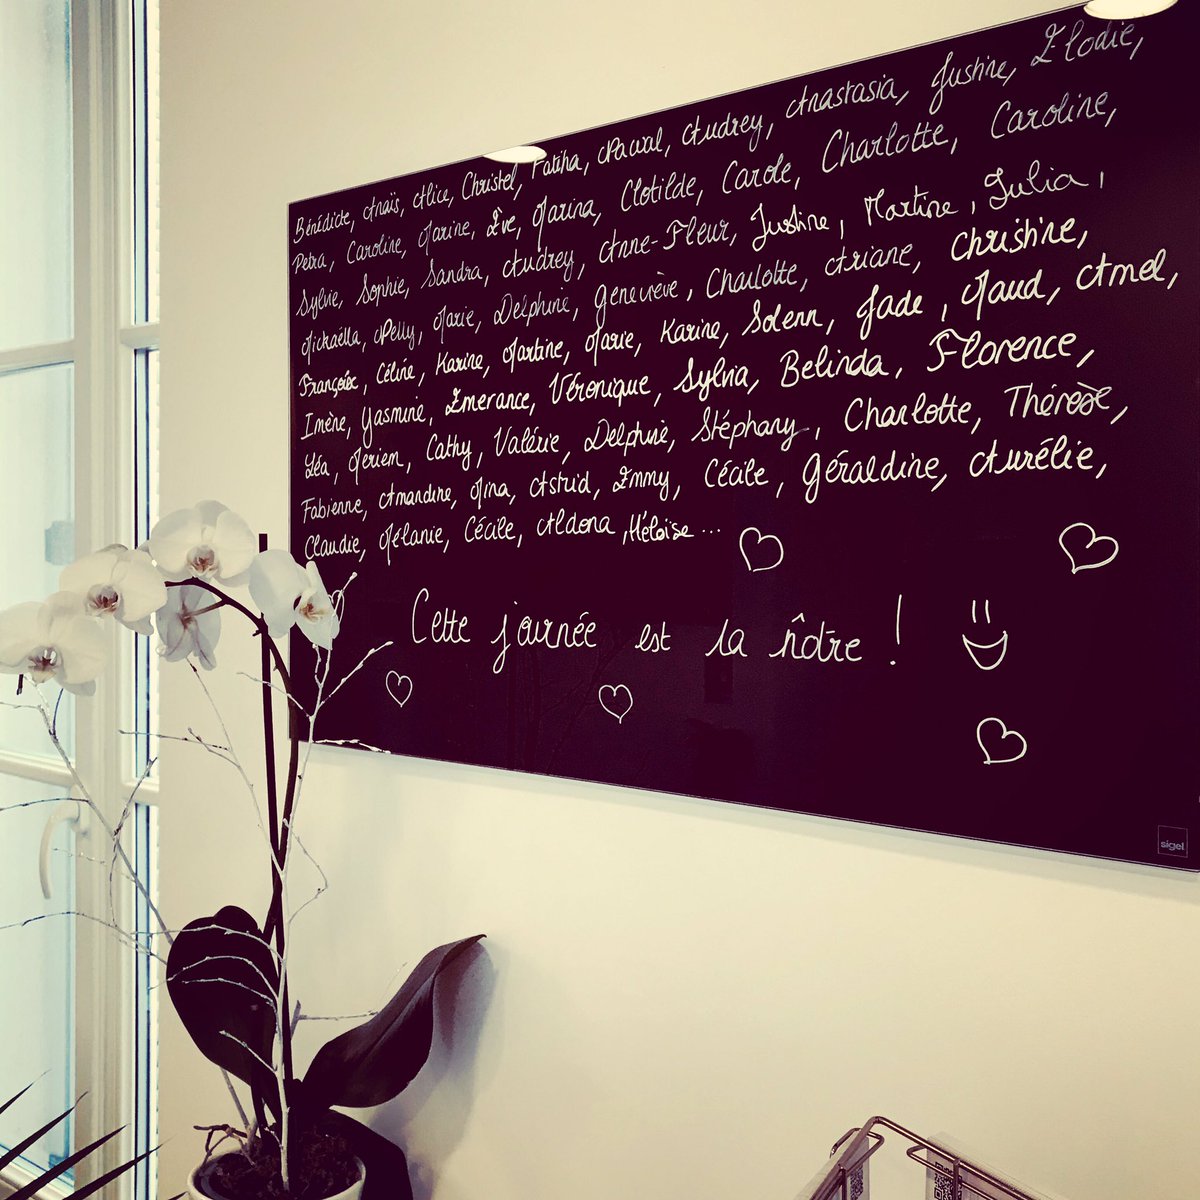 Bénédicte, Anaïs, Alice, Christel, Fatiha, Nawal, Audrey, Anastasia, Justine, Elodie,
Petra, Caroline, Marine, Eve, Marina, Clotilde, Carole, Charlotte, Caroline,
Sylvie, Sophie, Sandra, Audrey, Anne-Fleur, Justine, Martine, Julia,
Mickaëlla, Nelly, Marie, Delphine, Geneviève, Charlotte, Ariane, Christine,
Françoise, Céline, Karine, Martine, Marie, Karine, Solenn, Jade, Maud, Amel,
Imène, Yasmine, Emerance, Véronique, Sylvia, Belinda, Florence,
Léa, Meriem, Cathy, Valérie, Delphine, Stéphany, Charlotte, Thérèse,
Fabienne, Amandine, Nina, Astrid, Emmy, Cécile, Géraldine, Aurélie,
Claudie, Mélanie, Cécile, Aldona, Héloïse ...
Cette journée est la nôtre !
sigel